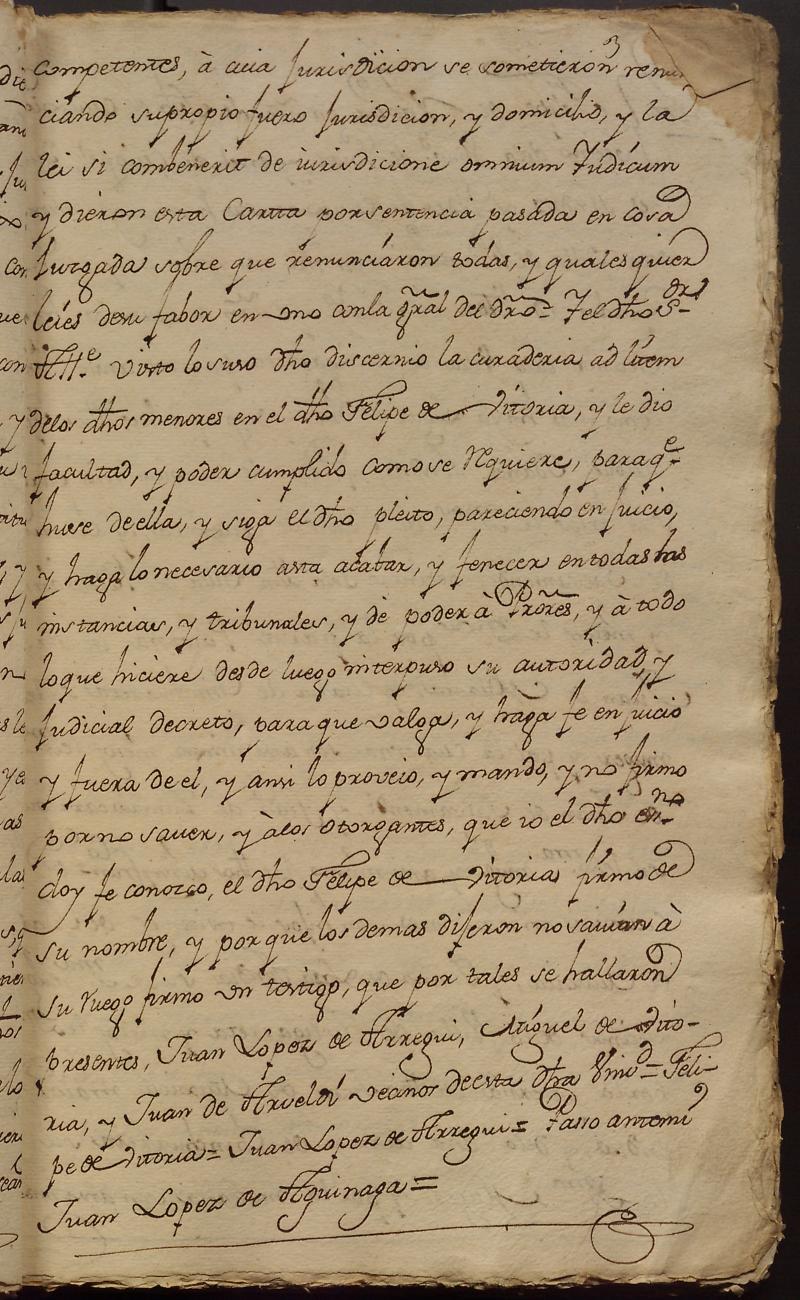 3
competentes, à cuia Jurisdicion se sometieron renun
ciando su propio fuero Jurisdicion, y domicilio, y la
lei si combenerit de iurisdicione omnium Judicum
y dieron esta Cartta por sentencia pasada en cosa
Juzgada sobre que renunciaron todas, y quales quier
leies de su fabor en uno con la gral del dro = Y el dho Sor
Alle visto lo suso dho discernio la curaderia ad litem
de los dhos menores en el dho Felipe de Vitoria, y le dio
facultad, y poder cumplido como se requiere, para qe
huse de ella, y siga el dho pleito, pareciendo en Juicio,
y haga lo necesario asta acabar, y fenecer en todas las
instancias, y tribunales, y dè poder à Prores, y à todo
lo que hiciere desde luego interpuso su autoridad, y
Judicial decreto, para que valga, y haga fe en Juicio
y fuera de el, y ansi lo proveio, y mando, y no firmo
por no saver, y à los otorgantes, que io el dho esno
doy fe conozco, el dho Felipe de Vitoria firmo de
su nombre, y por que los demas diferon no savian à
su ruego firmo un testigo, que por tales se hallaron
presentes, Juan Lopez de Arregui, Miguel de Vito-
ria, y Juan de Arueldi vecinos de esta dha Vnivd = Feli-
pe de Vitoria = Juan Lopez de Arregui = Passo antemi
Juan Lopez de Aguinaga =